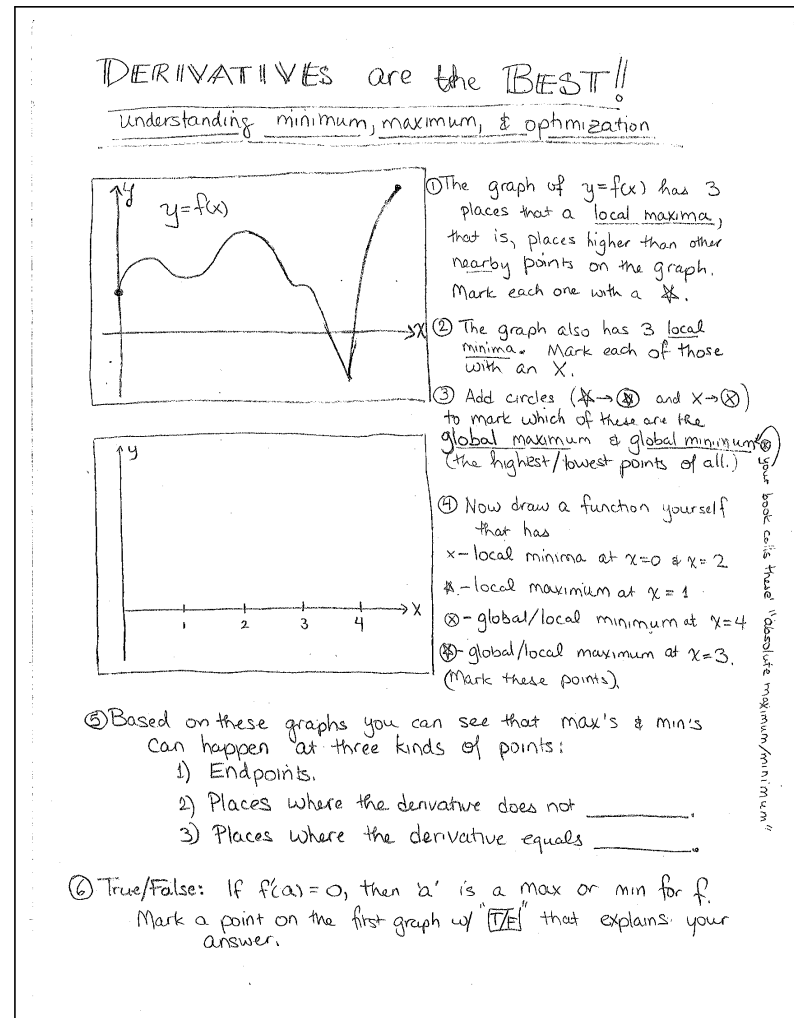 DERIVATIVES are the BEST!!
understanding minimum, maximum, & optimization
y
y=f(x)
x
① The graph of y=f(x) has 3
places that a local maxima,
that is, places higher than other
nearby points on the graph.
Mark each one with a ☆.
② The graph also has 3 local
minima. Mark each of those
with an X.
③ Add circles (☆→⍟ and X→ⓧ)
to mark which of these are the
global maximum & global minimum*
(the highest/lowest points of all.)
* your book calls these "absolute maximum/minimum"
y
1 2 3 4 x
④ Now draw a function yourself
that has
x – local minima at x=0 & x=2
☆ – local maximium at x=1
ⓧ – global/local minimum at x=4
⍟ – global/local maximum at x=3.
(Mark these points).
⑤ Based on these graphs you can see that max's & min's
can happen at three kinds of points:
1) Endpoints.
2) Places where the derivative does not ______.
3) Places where the derivative equals ______.
⑥ True/False: If f'(a)=0, then 'a' is a max or min for f.
Mark a point on the first graph w/ "T/F" that explains your
answer.